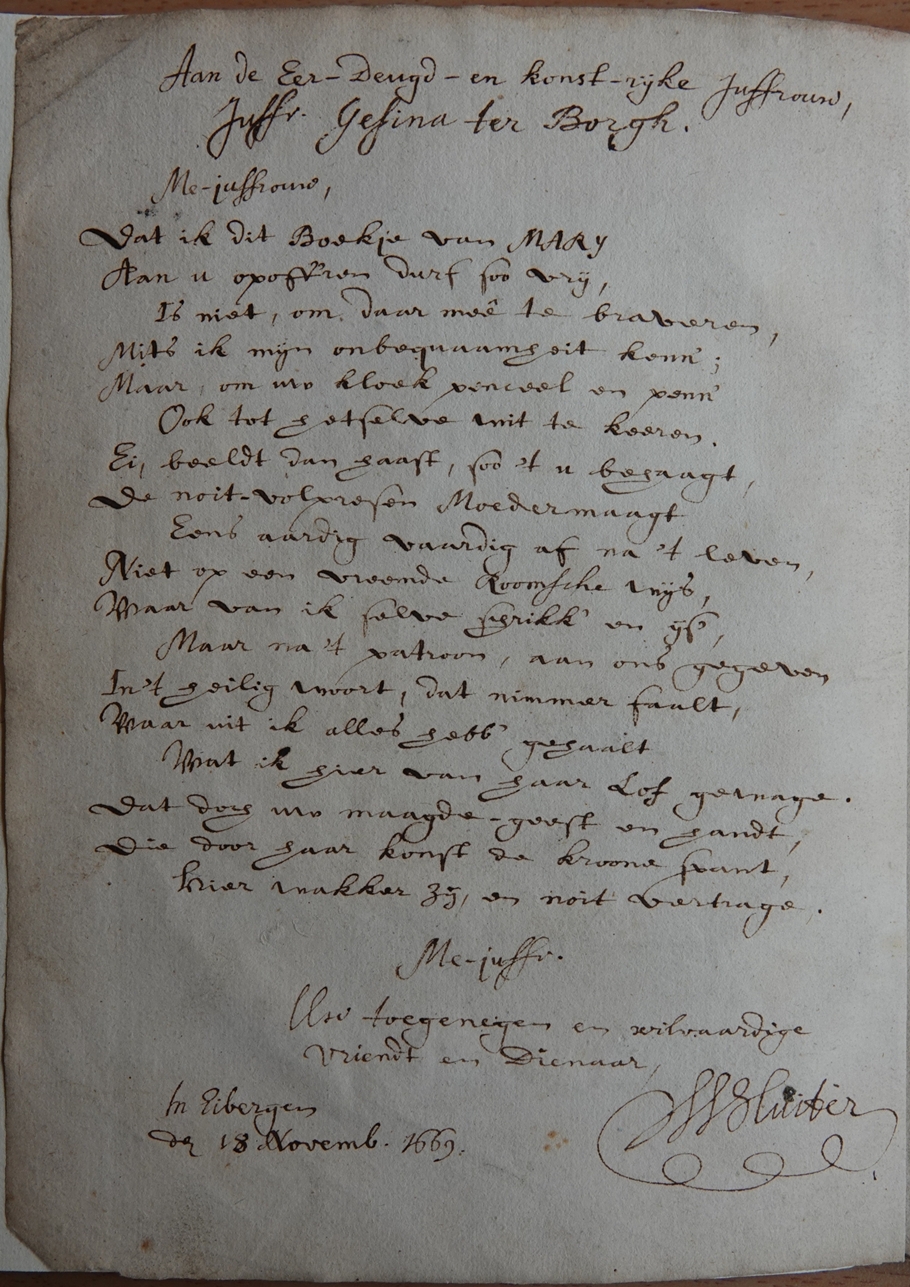 Aan de Eer-Deugd-en konst-ryke Juffrouw,
Juffr. Gesina ter Borgh.
Me-juffrouw,
Dat ik dit Boekje van MARY
Aan u opoff'ren durf soo vry,
Is niet, om daar meê te braveren,
Mits ik mijn onbequaamheit kenn';
Maar, om uw kloek penceel en penn'
Ook tot hetselve uit te keeren.
Ei, beeldt dan haast, soo 't u behaagt,
De noit-volpresen Moedermaagt
Eens aardig vaardig af na 't leven,
Niet op een vreemde Roomsche wijs,
Waar van ik selve schrikk' en ys',
Maar na 't patroon, aan ons gegeven
In 't heilig woort, dat nimmer faalt,
Waar uit ik alles hebb' gehaalt
Wat ik hier van haar Lof gewage.
Dat doch uw maagde-geest en handt,
Die door haar konst de kroone spant,
Hier wakker zij, en noit vertrage.
Me-juffr.
Uw toegenegen en wilvaardige
Vriendt en Dienaar,
In Eibergen
den 18 Novemb. 1669.
W Sluiter